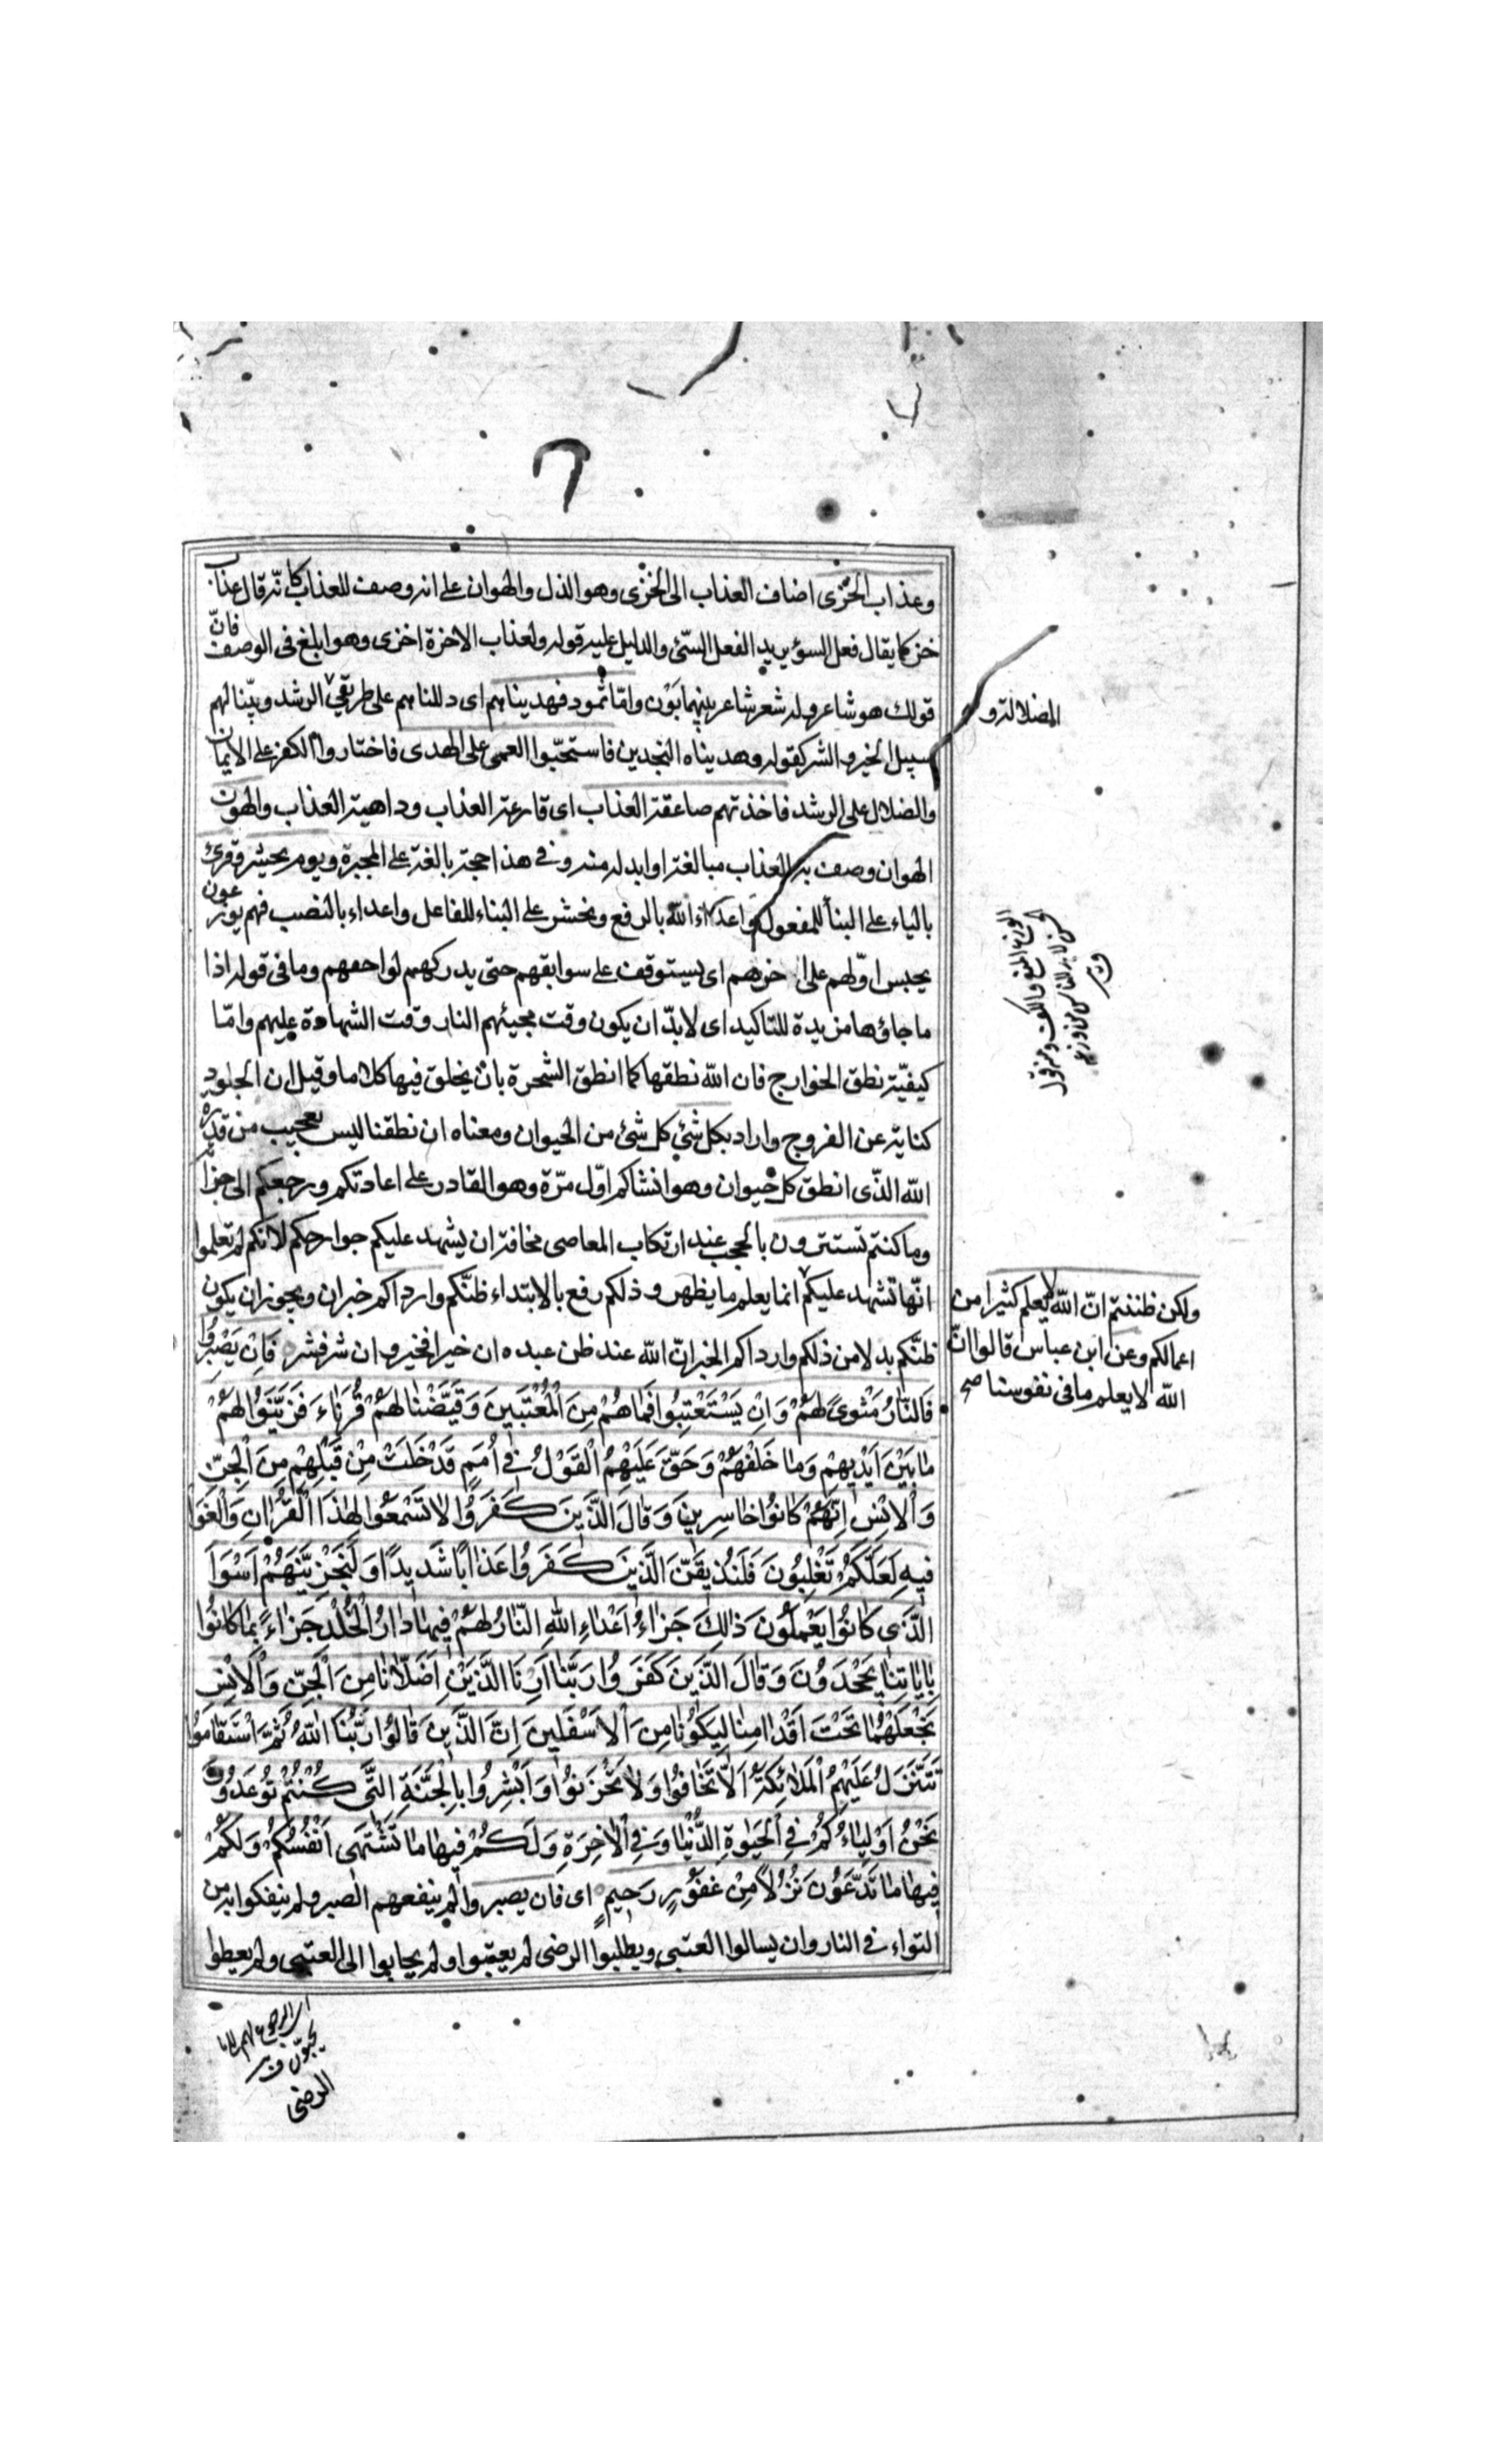 وعذاب الخزى اضاف العذاب الى الخزى وهو الذل والهوان على انه وصف للعذاب كانّه قال عذاب
خز كما يقال فعل السؤ يريد الفعل السّئ والدليل عليه قوله ولعذاب الاخرة اخزى وهو ابلغ فى الوصف فانّ
قولك هو شاعر وله شعر شاعر بينهما بَوْن وامّا ثمود فهديناهم اى دللناهم على طريقي الرشد وبيّنا لهم
سبيل الخير والشر كقوله وهديناه النجدين فاستحبّوا العمى على الهدى فاختاروا الكفر على الايمان
والضلال على الرشد فاخذتهم صاعقة العذاب اى قارعة العذاب وداهية العذاب والهون
الهوان وصف به العذاب مبالغة او ابدله منه وفي هذا حجة بالغة على المجبرة ويوم يحشر وقرئ
بالياء على البنأ للمفعول واعداء الله بالرفع ونحشر على البناء للفاعل واعداء بالنصب فهم يوزعون
يحبس اوّلهم على اخرهم اى يستوقف على سوابقهم حتى يدركهم لواحقهم وما فى قوله اذا
ما جاؤها مزيدة للتاكيد اى لابدّ ان يكون وقت مجيئهم النار وقت الشهادة عليهم وامّا
كيفيّة نطق الجوارح فان الله نطقها كما انطق الشجرة بان يخلق فيها كلاما وقيل ان الجلود
كناية عن الفروج واراد بكل شئ كل شئ من الحيوان ومعناه ان نطقنا ليس بعجيب من قدرة
الله الذّى انطق كل حيوان وهو انشاكم اوّل مرّة وهو القادر على اعادتكم ورجعكم الى جزائه
وما كنتم تستترون بالحجب عند ارتكاب المعاصى مخافة ان يشهد عليكم جوارحكم لانكم لم تعلموا
انّها تشهد عليكم انما يعلم ما يظهر وذلكم رفع بالابتداء ظنّكم وارداكم خبران ويجوز ان يكون
ظنّكم بدلا من ذلكم وارداكم الخبر انّ الله عند ظن عبده ان خيرا فخير وان شر فشر فَاِنْ يَصْبِرُوا
فَالنّٰارُ مَثْوىً لَهُمْ وَاِنْ يَسْتَعْتِبُوا فَمٰا هُمْ مِنَ الْمُعْتَبِينَ وَقَيَّضْنٰا لَهُمْ قُرَنٰاءَ فَزَيَّنُوا لَهُمْ
مٰا بَيْنَ اَيْدِيهِمْ وَمٰا خَلْفَهُمْ وَحَقَّ عَلَيْهِمُ الْقَوْلُ فِي اُمَمٍ قَدْ خَلَتْ مِنْ قَبْلِهِمْ مِنَ الْجِنِّ
وَالْاِنْسِ اِنَّهُمْ كٰانُوا خٰاسِرِينَ وَقٰالَ الَّذِينَ كَفَرُوا لٰا تَسْمَعُوا لِهٰذَا الْقُرْاٰنِ وَالْغَوْا
فِيهِ لَعَلَّكُمْ تَغْلِبُونَ فَلَنُذِيقَنَّ الَّذِينَ كَفَرُوا عَذٰابًا شَدِيدًا وَلَنَجْزِيَنَّهُمْ اَسْوَاَ
الَّذِى كٰانُوا يَعْمَلُونَ ذٰلِكَ جَزٰاءُ اَعْدٰاءِ اللّٰهِ النّٰارُ لَهُمْ فِيهٰا دٰارُ الْخُلْدِ جَزٰاءً بِمٰا كٰانُوا
بِاٰيٰاتِنٰا يَجْحَدُونَ وَقٰالَ الَّذِينَ كَفَرُوا رَبَّنٰا اَرِنَا الَّذَيْنِ اَضَلّٰانٰا مِنَ الْجِنِّ وَالْاِنْسِ
نَجْعَلْهُمٰا تَحْتَ اَقْدٰامِنٰا لِيَكُونٰا مِنَ الْاَسْفَلِينَ اِنَّ الَّذِينَ قٰالُوا رَبُّنَا اللّٰهُ ثُمَّ اسْتَقٰامُوا
تَتَنَزَّلُ عَلَيْهِمُ الْمَلٰائِكَةُ اَلّٰا تَخٰافُوا وَلٰا تَحْزَنُوا وَاَبْشِرُوا بِالْجَنَّةِ الَّتِى كُنْتُمْ تُوعَدُونَ
نَحْنُ اَوْلِيٰاءُكُمْ فِي الْحَيٰوةِ الدُّنْيٰا وَفِي الْاٰخِرَةِ وَلَكُمْ فِيهٰا مٰا تَشْتَهِى اَنْفُسُكُمْ وَلَكُمْ
فِيهٰا مٰا تَدَّعُونَ نُزُلًا مِنْ غَفُورٍ رَحِيمٍ اى فان يصبروا لم ينفعهم الصبر ولم ينفكوا به من
الثواء فى النار وان يسالوا العتبى ويطلبوا الرضى لم يعتبوا ولم يجابوا الى العتبى ولم يعطوا
الضلالة و
ولكن ظننتم انّ الله لا يعلم كثيرا من
اعمالكم وعن ابن عباس قالوا انّ
الله لا يعلم ما فى نفوسنا صح
الوزع المنع والكف ومنه قول
الحسن لابد للناس من وزعة
الرضى